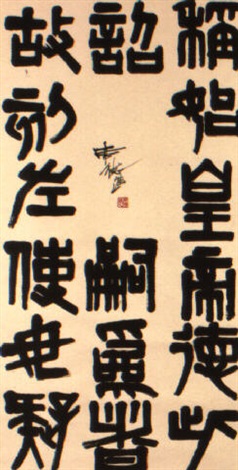 稱始皇帝德此
詔
嗣為者
故刻左使毋疑